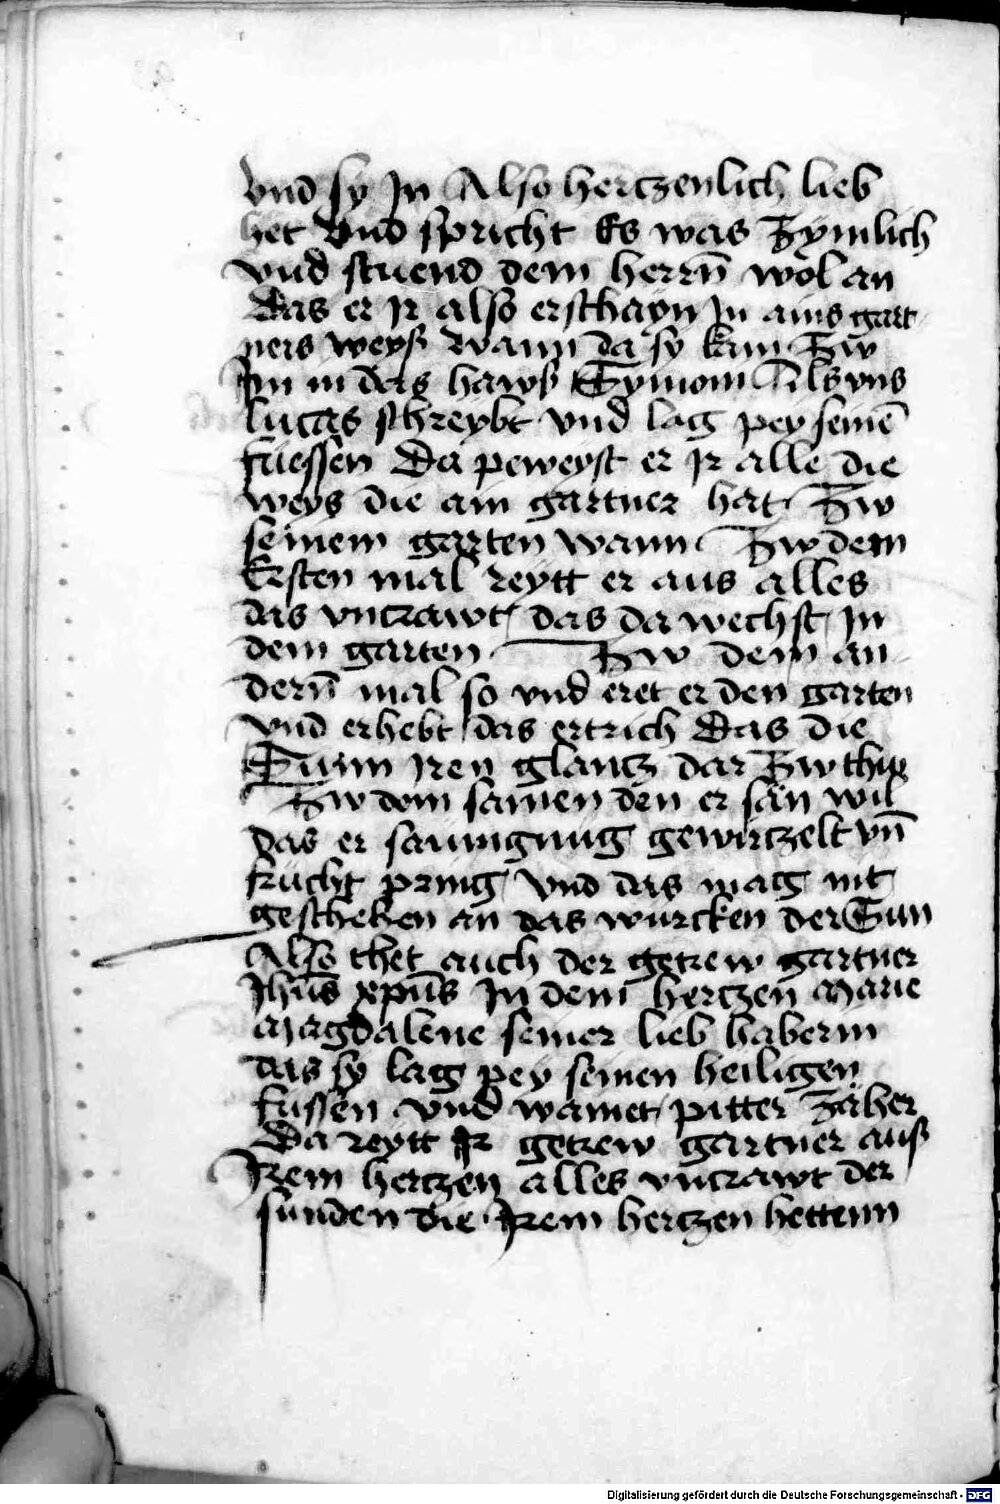 vnd sy Jn Also hertzenlich lieb
het Vnd spricht Es was Zymlich
vnd stuend dem herrn̄ wol an
Das er Jr also erschayn Jn ains gart
ners weyß Wann da sy kam Zw
Jm in das hawß Symonis Als vns
lucas schreybt vnd lag pey seinē
fuessen Da peweyst er Jr alle die
weys die ain gartner hat Zw
seinem garten Wann Zw dem
Ersten mal reytt er aus alles
das vncrawt das da wechst Jn
dem garten Zw dem an
dern̄ mal so vnd eret er den garten
vnd erhebt das ertrich Das die
Sunn Iren glancz dar Zw thue
Zw dem samen den er sän wil
das er gewurtzelt vn̄
frucht pring Vnd das mag nit
geschehen an das wurcken der Sun
Also thet auch der getrew gartner
Jhūs xpūs Jn dem hertzen Marie
Magdalene seiner lieb haberin
das sy lag pey seinen heiligen
fussen vnd wainet pitter Zäher
Da reytt Jr getrew gartner auß
Jrem hertzen alles vncrawt der
sunden die Jrem hertzen hettenn
Digitalisierung gefördert durch die Deutsche Forschungsgemeinschaft - DFG